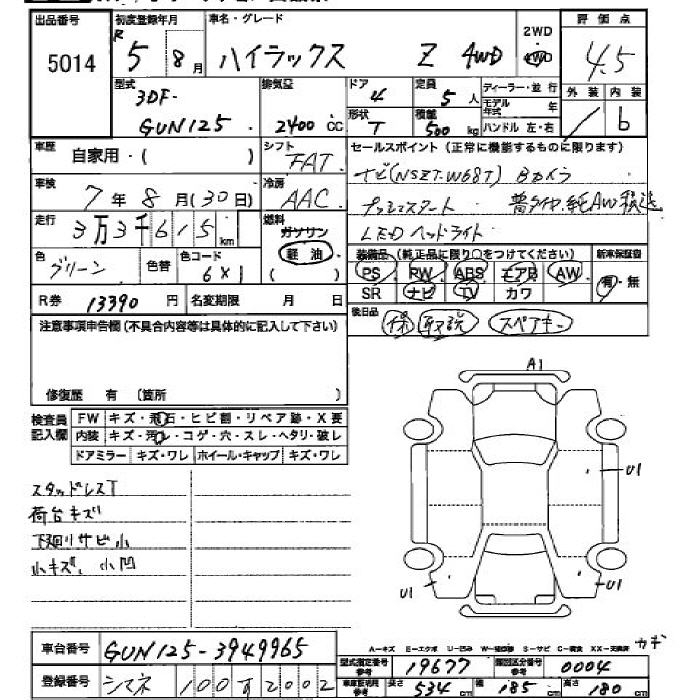 出品番号 初度登録年月 車名・グレード 2WD 評価点
5014 R 5 8月 ハイラックス Z 4WD 4WD 4.5
型式 排気量 ドア 定員 ディーラー・並行 外装 内装
3DF- 4 5人 モデル年式 年
GUN125 2400cc 形状 T 積載 500kg ハンドル 左・右 b
車歴 自家用・( ) シフト FAT セールスポイント (正常に機能するものに限ります)
車検 7年8月(30日) 冷房 AAC ナビ(NSZT-W68T) Bカメラ
走行 3万3千615km 燃料 ガソリン プッシュスタート 普タイヤ、純AW積込
色 グリーン 色替 色コード 6X1 軽油 LEDヘッドライト
装備品 (純正品に限り○をつけてください) 新車保証書
PS PW ABS エアB AW 有・無
R券 13390円 名変期限 月 日 SR ナビ TV カワ
注意事項申告欄(不具合内容等は具体的に記入して下さい) 後日品 保 取説 スペアキー
修復歴 有 (箇所 )
A1
検査員記入欄 FW キズ・飛石・ヒビ割・リペア跡・X要
内装 キズ・汚レ・コゲ・穴・スレ・ヘタリ・破レ
ドアミラー キズ・ワレ ホイール・キャップ キズ・ワレ
U1
スタッドレスT
荷台キズ
下廻りサビ小
小キズ、小凹
U1 U1
車台番号 GUN125-3949965
A-キズ E-エクボ U-凹み S-サビ カギ
型式指定番号 19677 類別区分番号 0004
登録番号 シマネ 100す2002 長さ 534cm 幅 185cm 高さ 180cm